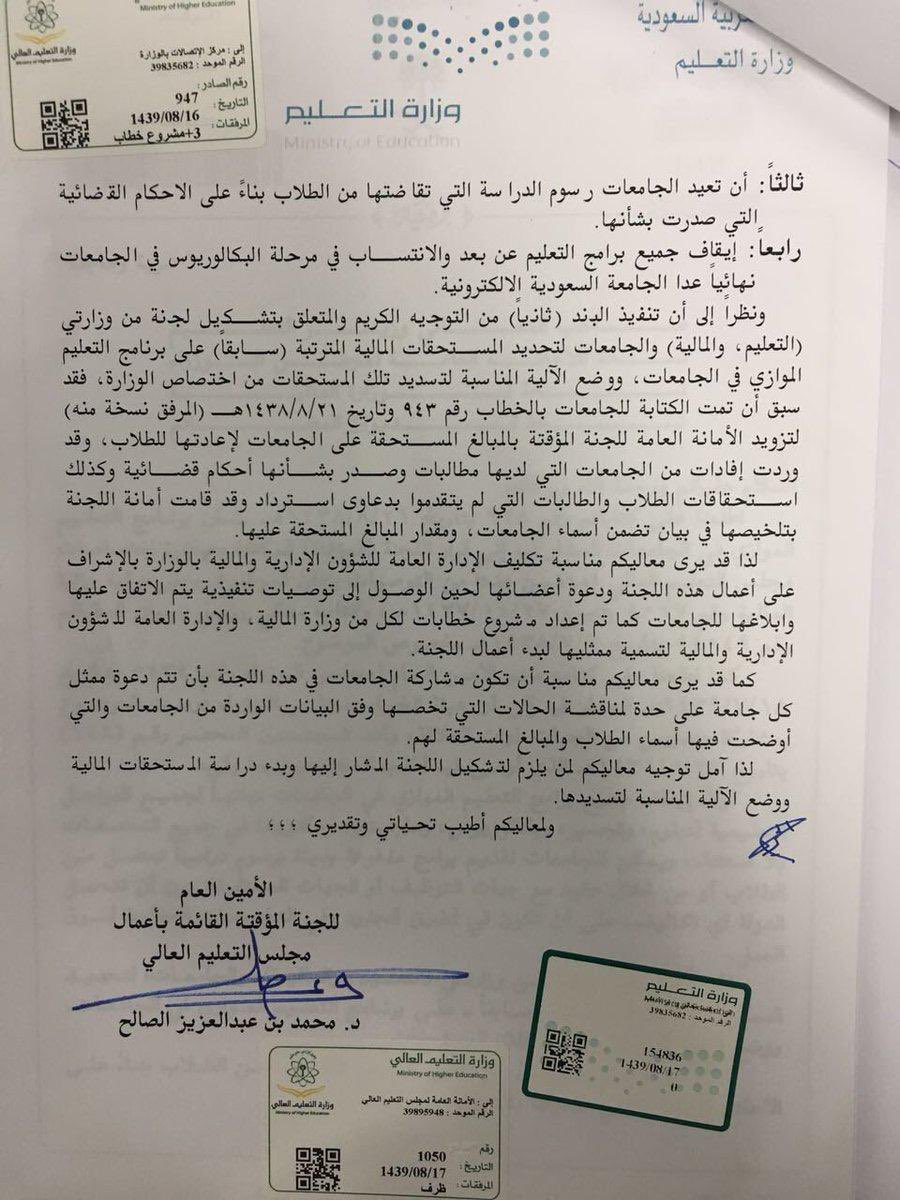 Ministry of Higher Education
وزارة التعليم العالي
Ministry of Higher Education
إلى : مركز الإتصالات بالوزارة
الرقم الموحد : 39835682
رقم الصادر: 947
التاريخ: 1439/08/16
المرفقات: 3+مشروع خطاب
وزارة التعليم
Ministry of Education
السعودية
وزارة التعليم
ثالثاً: أن تعيد الجامعات رسوم الدراسة التي تقاضتها من الطلاب بناءً على الاحكام القضائية
التي صدرت بشأنها.
رابعاً: إيقاف جميع برامج التعليم عن بعد والانتساب في مرحلة البكالوريوس في الجامعات
نهائياً عدا الجامعة السعودية الالكترونية.
ونظراً إلى أن تنفيذ البند (ثانياً) من التوجيه الكريم والمتعلق بتشكيل لجنة من وزارتي
(التعليم، والمالية) والجامعات لتحديد المستحقات المالية المترتبة (سابقاً) على برنامج التعليم
الموازي في الجامعات، ووضع الآلية المناسبة لتسديد تلك المستحقات من اختصاص الوزارة، فقد
سبق أن تمت الكتابة للجامعات بالخطاب رقم ٩٤٣ وتاريخ ١٤٣٨/٨/٢١هـ (المرفق نسخة منه)
لتزويد الأمانة العامة للجنة المؤقتة بالمبالغ المستحقة على الجامعات لإعادتها للطلاب، وقد
وردت إفادات من الجامعات التي لديها مطالبات وصدر بشأنها أحكام قضائية وكذلك
استحقاقات الطلاب والطالبات التي لم يتقدموا بدعاوى استرداد وقد قامت أمانة اللجنة
بتلخيصها في بيان تضمن أسماء الجامعات، ومقدار المبالغ المستحقة عليها.
لذا قد يرى معاليكم مناسبة تكليف الإدارة العامة للشؤون الإدارية والمالية بالوزارة بالإشراف
على أعمال هذه اللجنة ودعوة أعضائها لحين الوصول إلى توصيات تنفيذية يتم الاتفاق عليها
وابلاغها للجامعات كما تم إعداد مشروع خطابات لكل من وزارة المالية، والإدارة العامة للشؤون
الإدارية والمالية لتسمية ممثليها لبدء أعمال اللجنة.
كما قد يرى معاليكم مناسبة أن تكون مشاركة الجامعات في هذه اللجنة بأن تتم دعوة ممثل
كل جامعة على حدة لمناقشة الحالات التي تخصها وفق البيانات الواردة من الجامعات والتي
أوضحت فيها أسماء الطلاب والمبالغ المستحقة لهم.
لذا آمل توجيه معاليكم لمن يلزم لتشكيل اللجنة المشار إليها وبدء دراسة المستحقات المالية
ووضع الآلية المناسبة لتسديدها.
ولمعاليكم أطيب تحياتي وتقديري ؛؛؛
الأمين العام
للجنة المؤقتة القائمة بأعمال
مجلس التعليم العالي
د. محمد بن عبدالعزيز الصالح
وزارة التعليم
الرقم الموحد : 39835682
154836
1439/08/17
0
وزارة التعليم العالي
Ministry of Higher Education
وزارة التعليم العالي
Ministry of Higher Education
إلى : الأمانة العامة لمجلس التعليم العالي
الرقم الموحد : 39895948
رقم 1050
التاريخ: 1439/08/17
المرفقات: ظرف